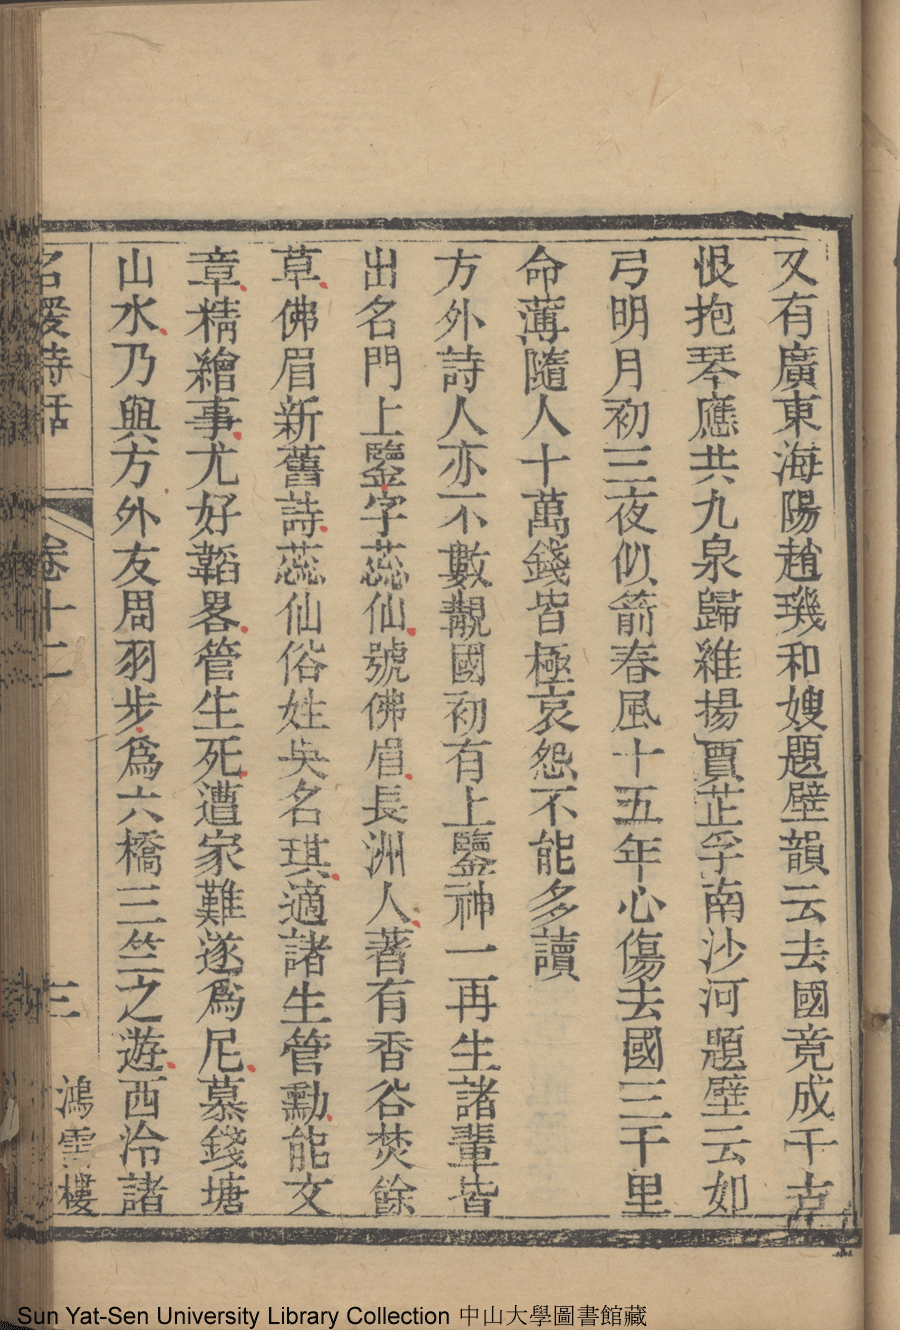 又有廣東海陽趙璣和嫂題壁韻云去國竟成千古
恨抱琴應共九泉歸維揚賈芷孚南沙河題壁云如
弓明月初三夜似箭春風十五年心傷去國三千里
命薄隨人十萬錢皆極哀怨不能多讀
方外詩人亦不數覯國初有上鑒神一再生諸輩皆
出名門上鑒字蕊仙號佛眉長洲人著有香谷焚餘
草佛眉新舊詩蕊仙俗姓吳名琪適諸生管勳能文
章精繪事尤好韜畧管生死遭家難遂爲尼慕錢塘
山水乃與方外友周羽步爲六橋三竺之遊西泠諸
名媛詩話 卷十二 三 鴻雪樓
Sun Yat-Sen University Library Collection 中山大學圖書館藏